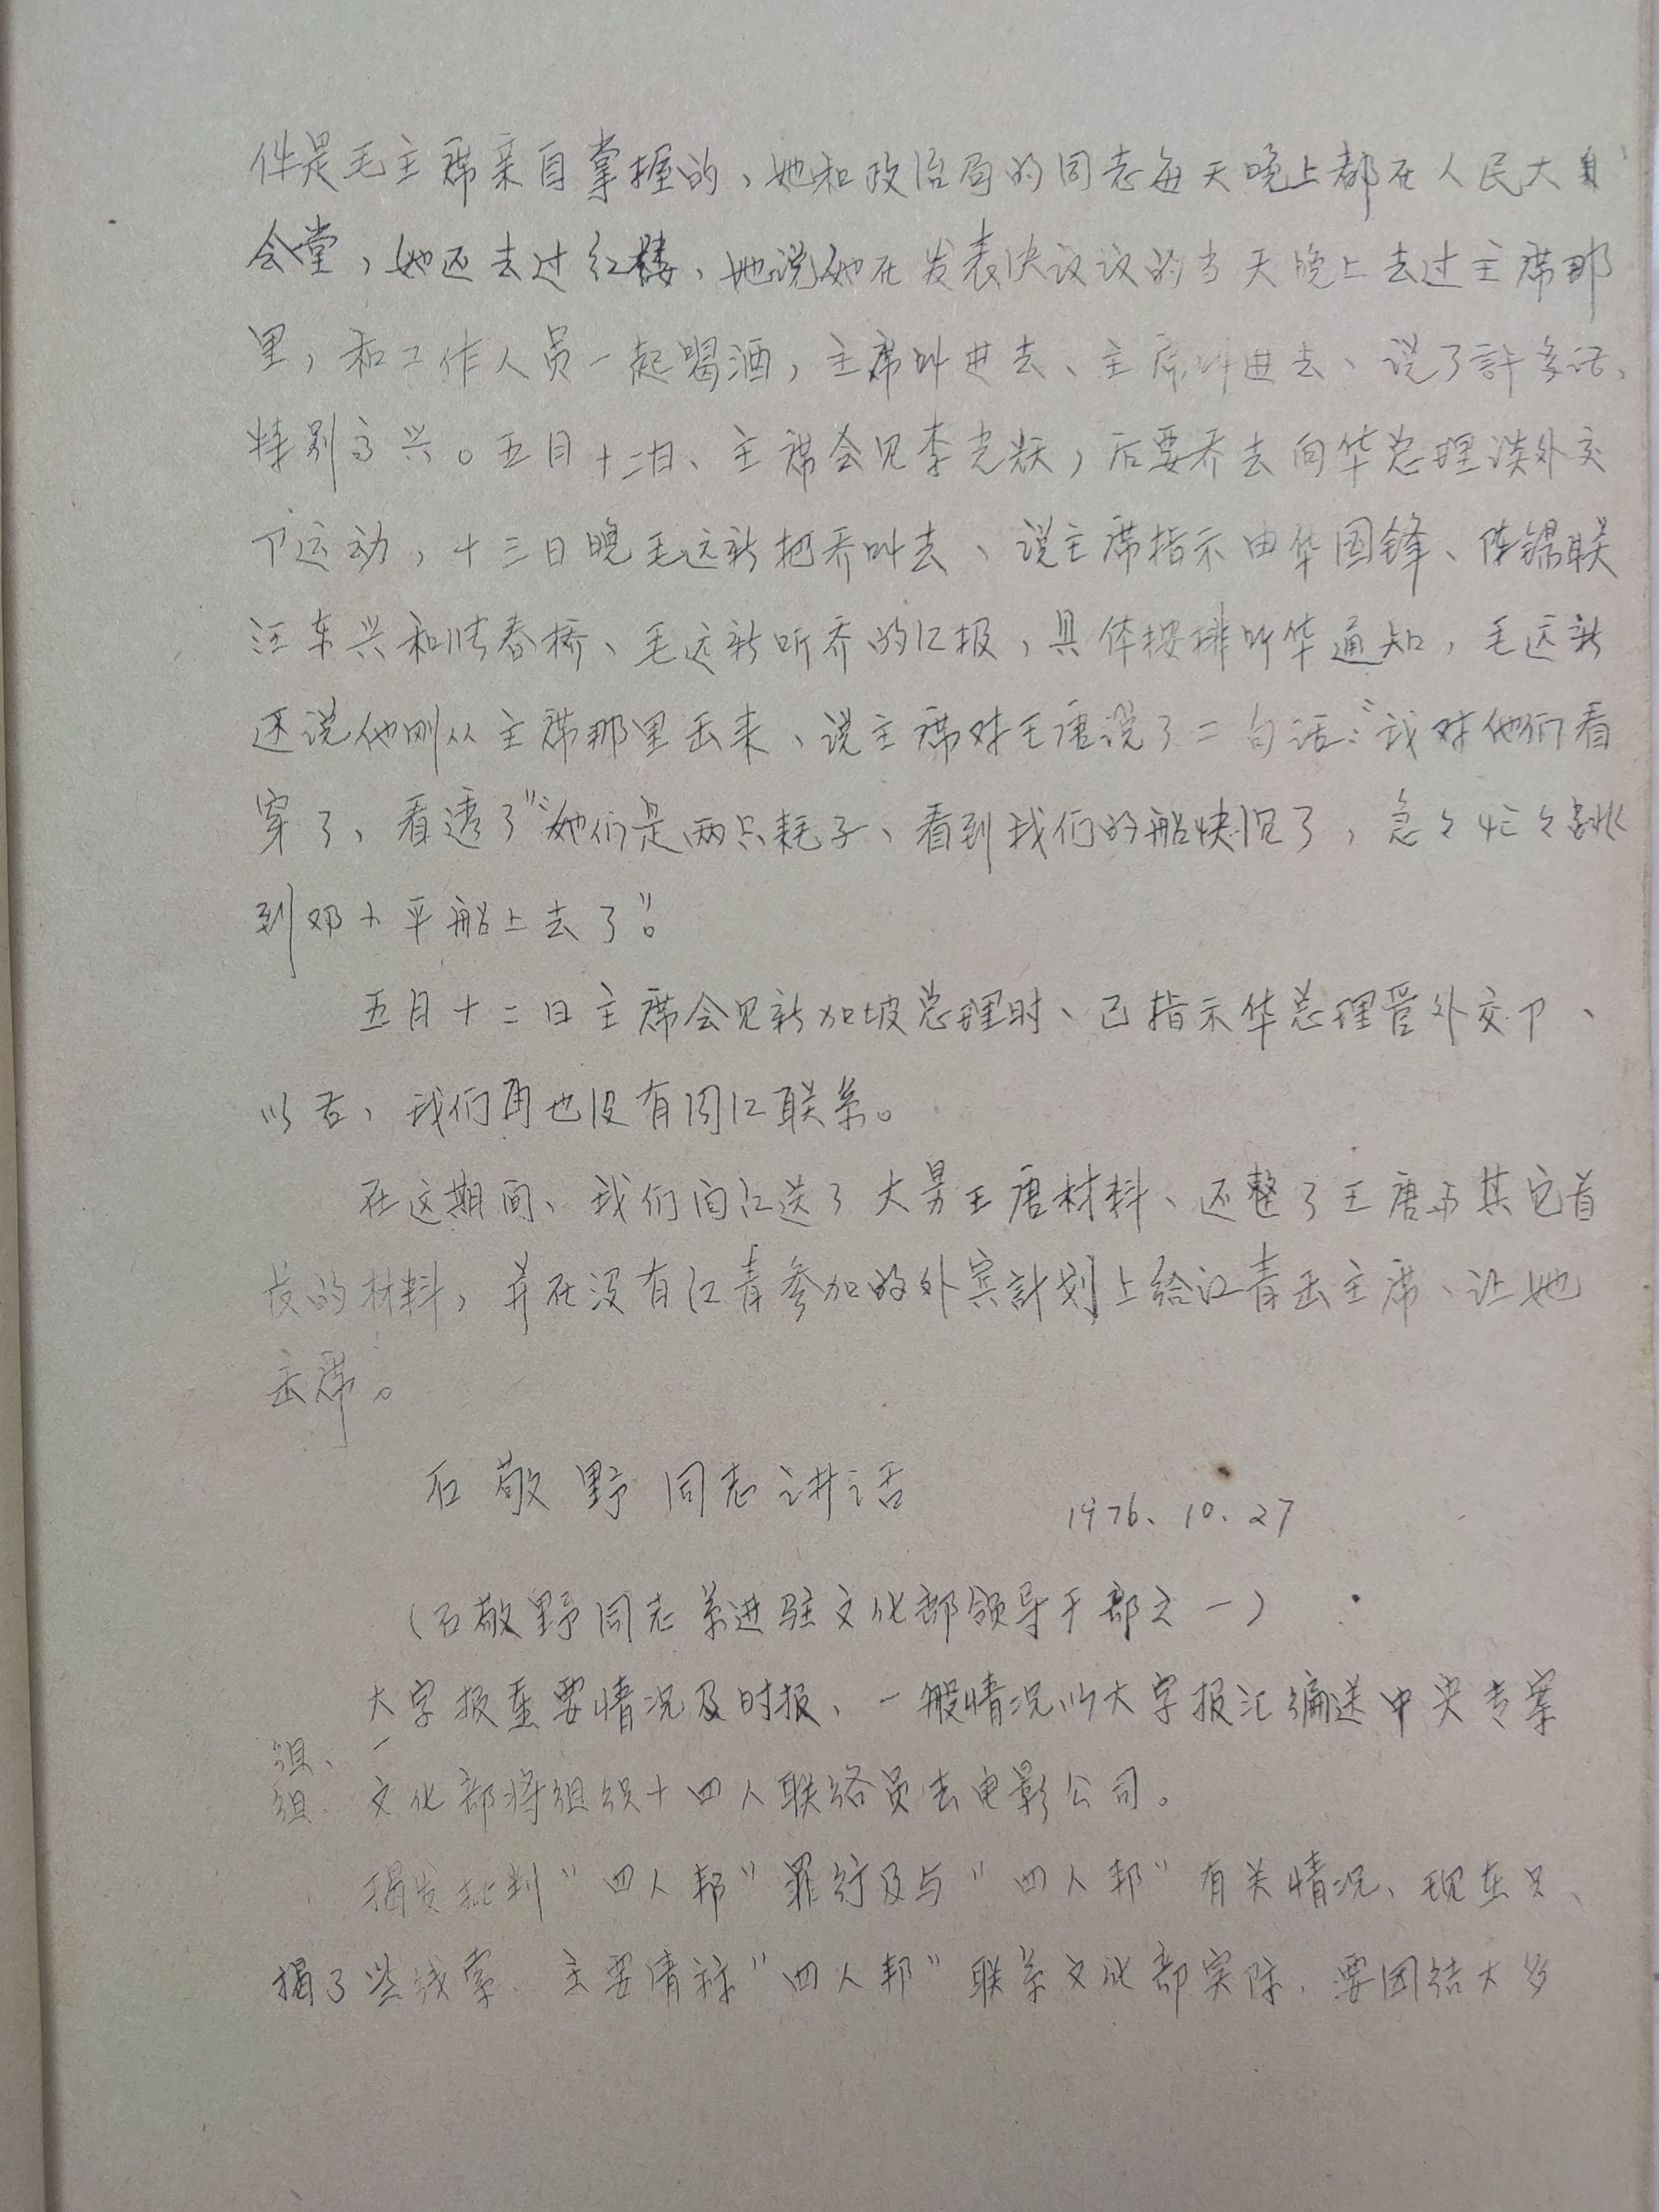 件是毛主席亲自掌握的、她和政治局的同志每天晚上都在人民大
会堂，她还去过红楼、她说她在发表决议议的当天晚上去过主席那
里，和工作人员一起喝酒，主席叫进去、主席叫进去、说了許多话、
特别高兴。五月十二日、主席会见李光耀，后要乔去向华总理谈外交
卩运动，十三日晚毛远新把乔叫去、说主席指示由华国锋、陈锡联
汪东兴和张春桥、毛远新听乔的汇报，具体按排听华通知，毛远新
还说他刚从主席那里出来、说主席对王唐说了二句话：“我对他们看
穿了，看透了”“她们是两只耗子、看到我们的船快沉了，急々忙々跳
到邓小平船上去了”。
五月十二日主席会见新加坡总理时、已指示华总理管外交卩、
以后，我们再也没有同江联系。
在这期间、我们向江送了大男王唐材料、还整了王唐与其它首
长的材料，并在没有江青参加的外宾計划上给江青出主席、让她
出席。
石敬野同志讲话
1976、10、27
（石敬野同志系进驻文化部领导干部之一）
大字报重要情况及时报、一般情况以大字报汇编送中央专案
组、
组、文化部将组织十四人联络员去电影公司。
揭发批判“四人邦”罪行及与“四人邦”有关情况、现在只、
揭了些线索、主要情称“四人邦”联系文化部实际、要团结大多